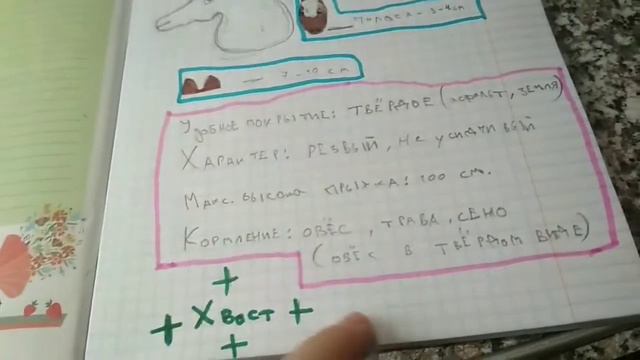 3-4см
— 7-10 см
Удобное покрытие: твёрдое (асфальт, земля)
Характер: резвый, не усидчивый
Макс. высота прыжка: 100 см.
Кормление: овёс, трава, сено
(овёс в твёрдом виде)
+
+ Хвост +
+